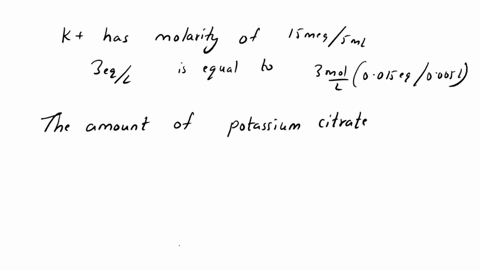 K+ has molarity of 15meq/5ml
3eq/L is equal to 3 mol/L (0.015eq/0.005l)
The amount of potassium citrate